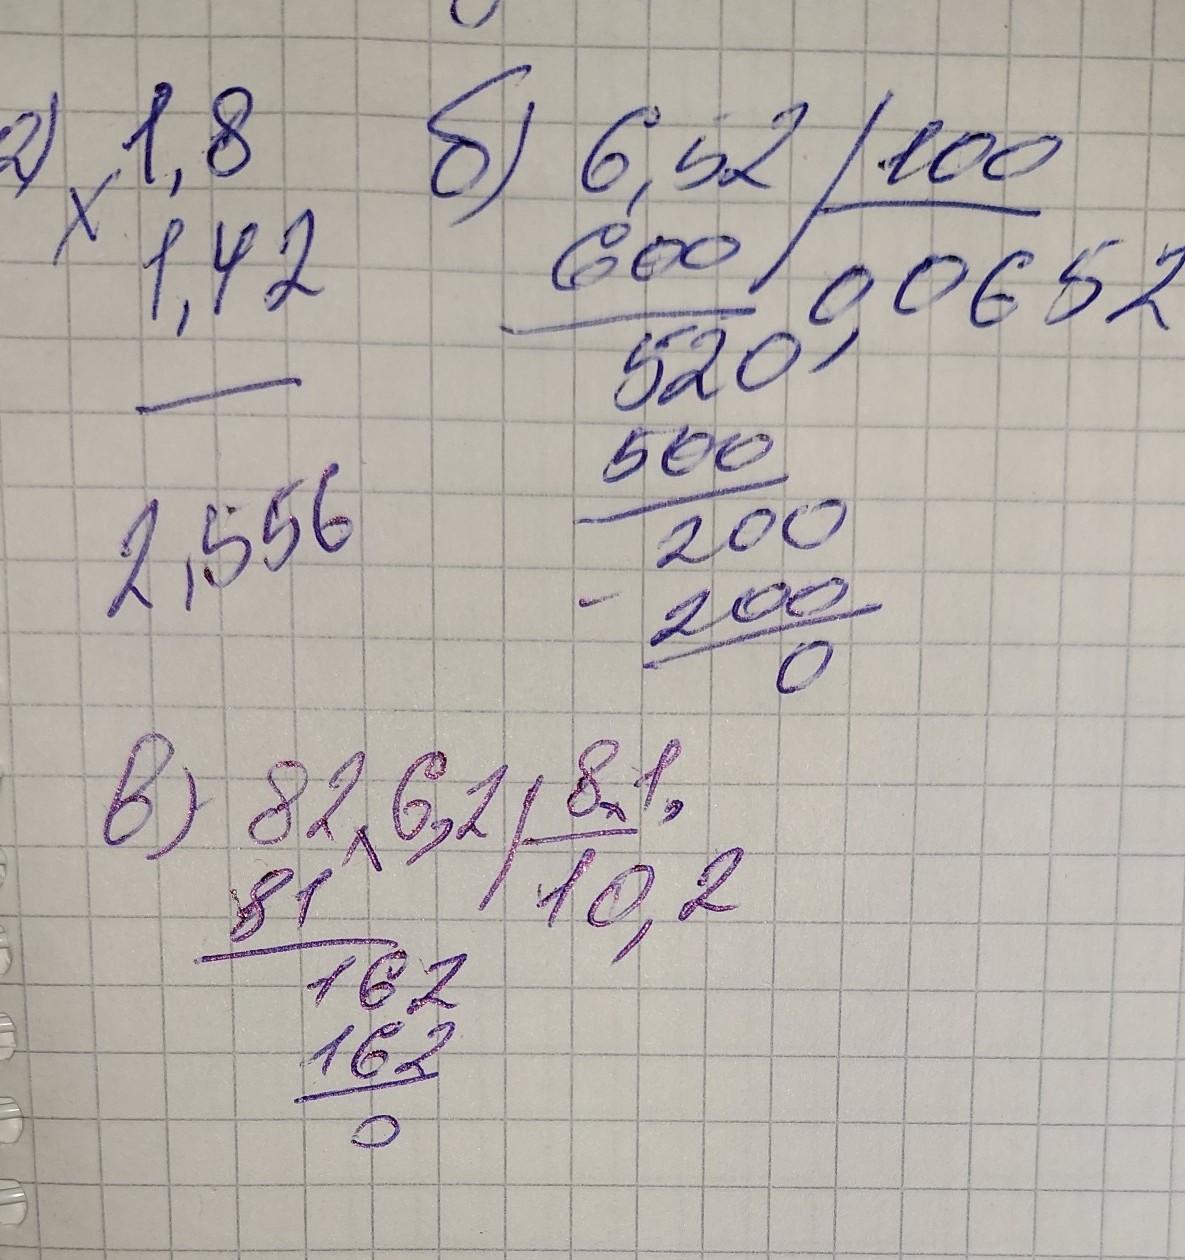 а) 1,8
× 1,42
2,556
б) 6,52 / 100
600 0,00652
520
500
200
- 200
0
в) 82,6,2 / 8,1,
81 10,2
162
162
0